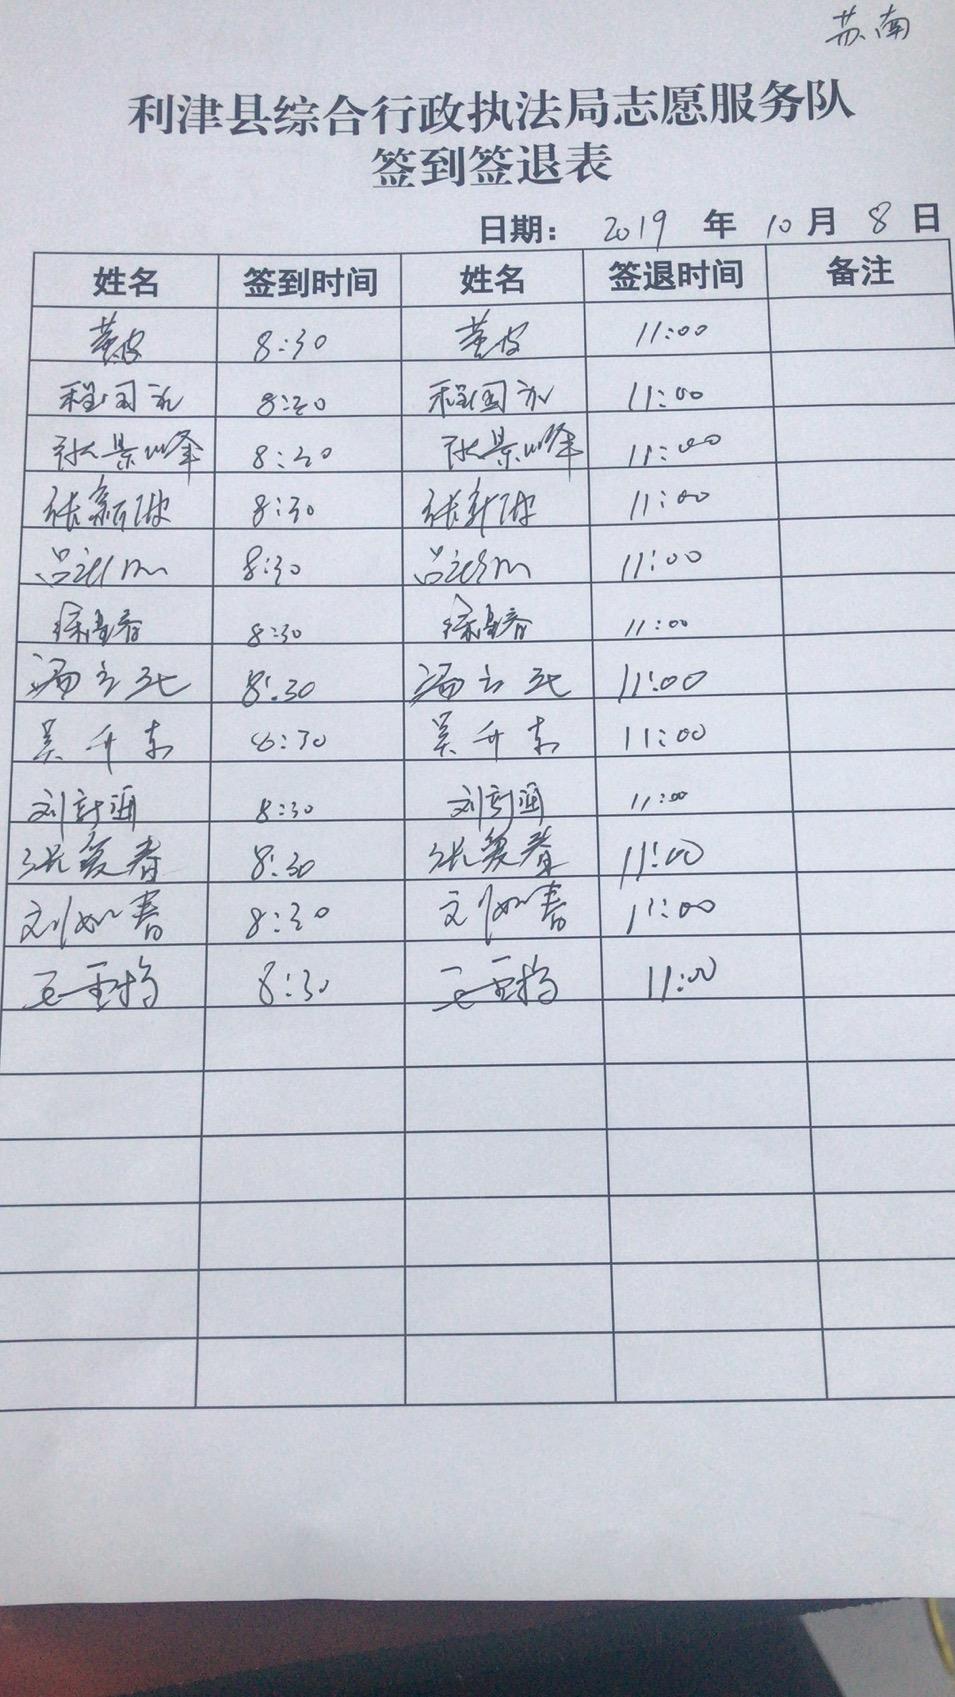 苏南
利津县综合行政执法局志愿服务队
签到签退表
日期： 2019 年 10 月 8 日
姓名 签到时间 姓名 签退时间 备注
8:30 11:00
程国 8:30 程国 11:00
张景峰 8:30 张景峰 11:00
张新波 8:30 张新波 11:00
吕 8:30 吕 11:00
8:30 11:00
8:30 11:00
吴升东 8:30 吴升东 11:00
刘新通 8:30 刘新通 11:00
张爱春 8:30 张爱春 11:00
刘如春 8:30 刘如春 11:00
王 8:30 王 11:00